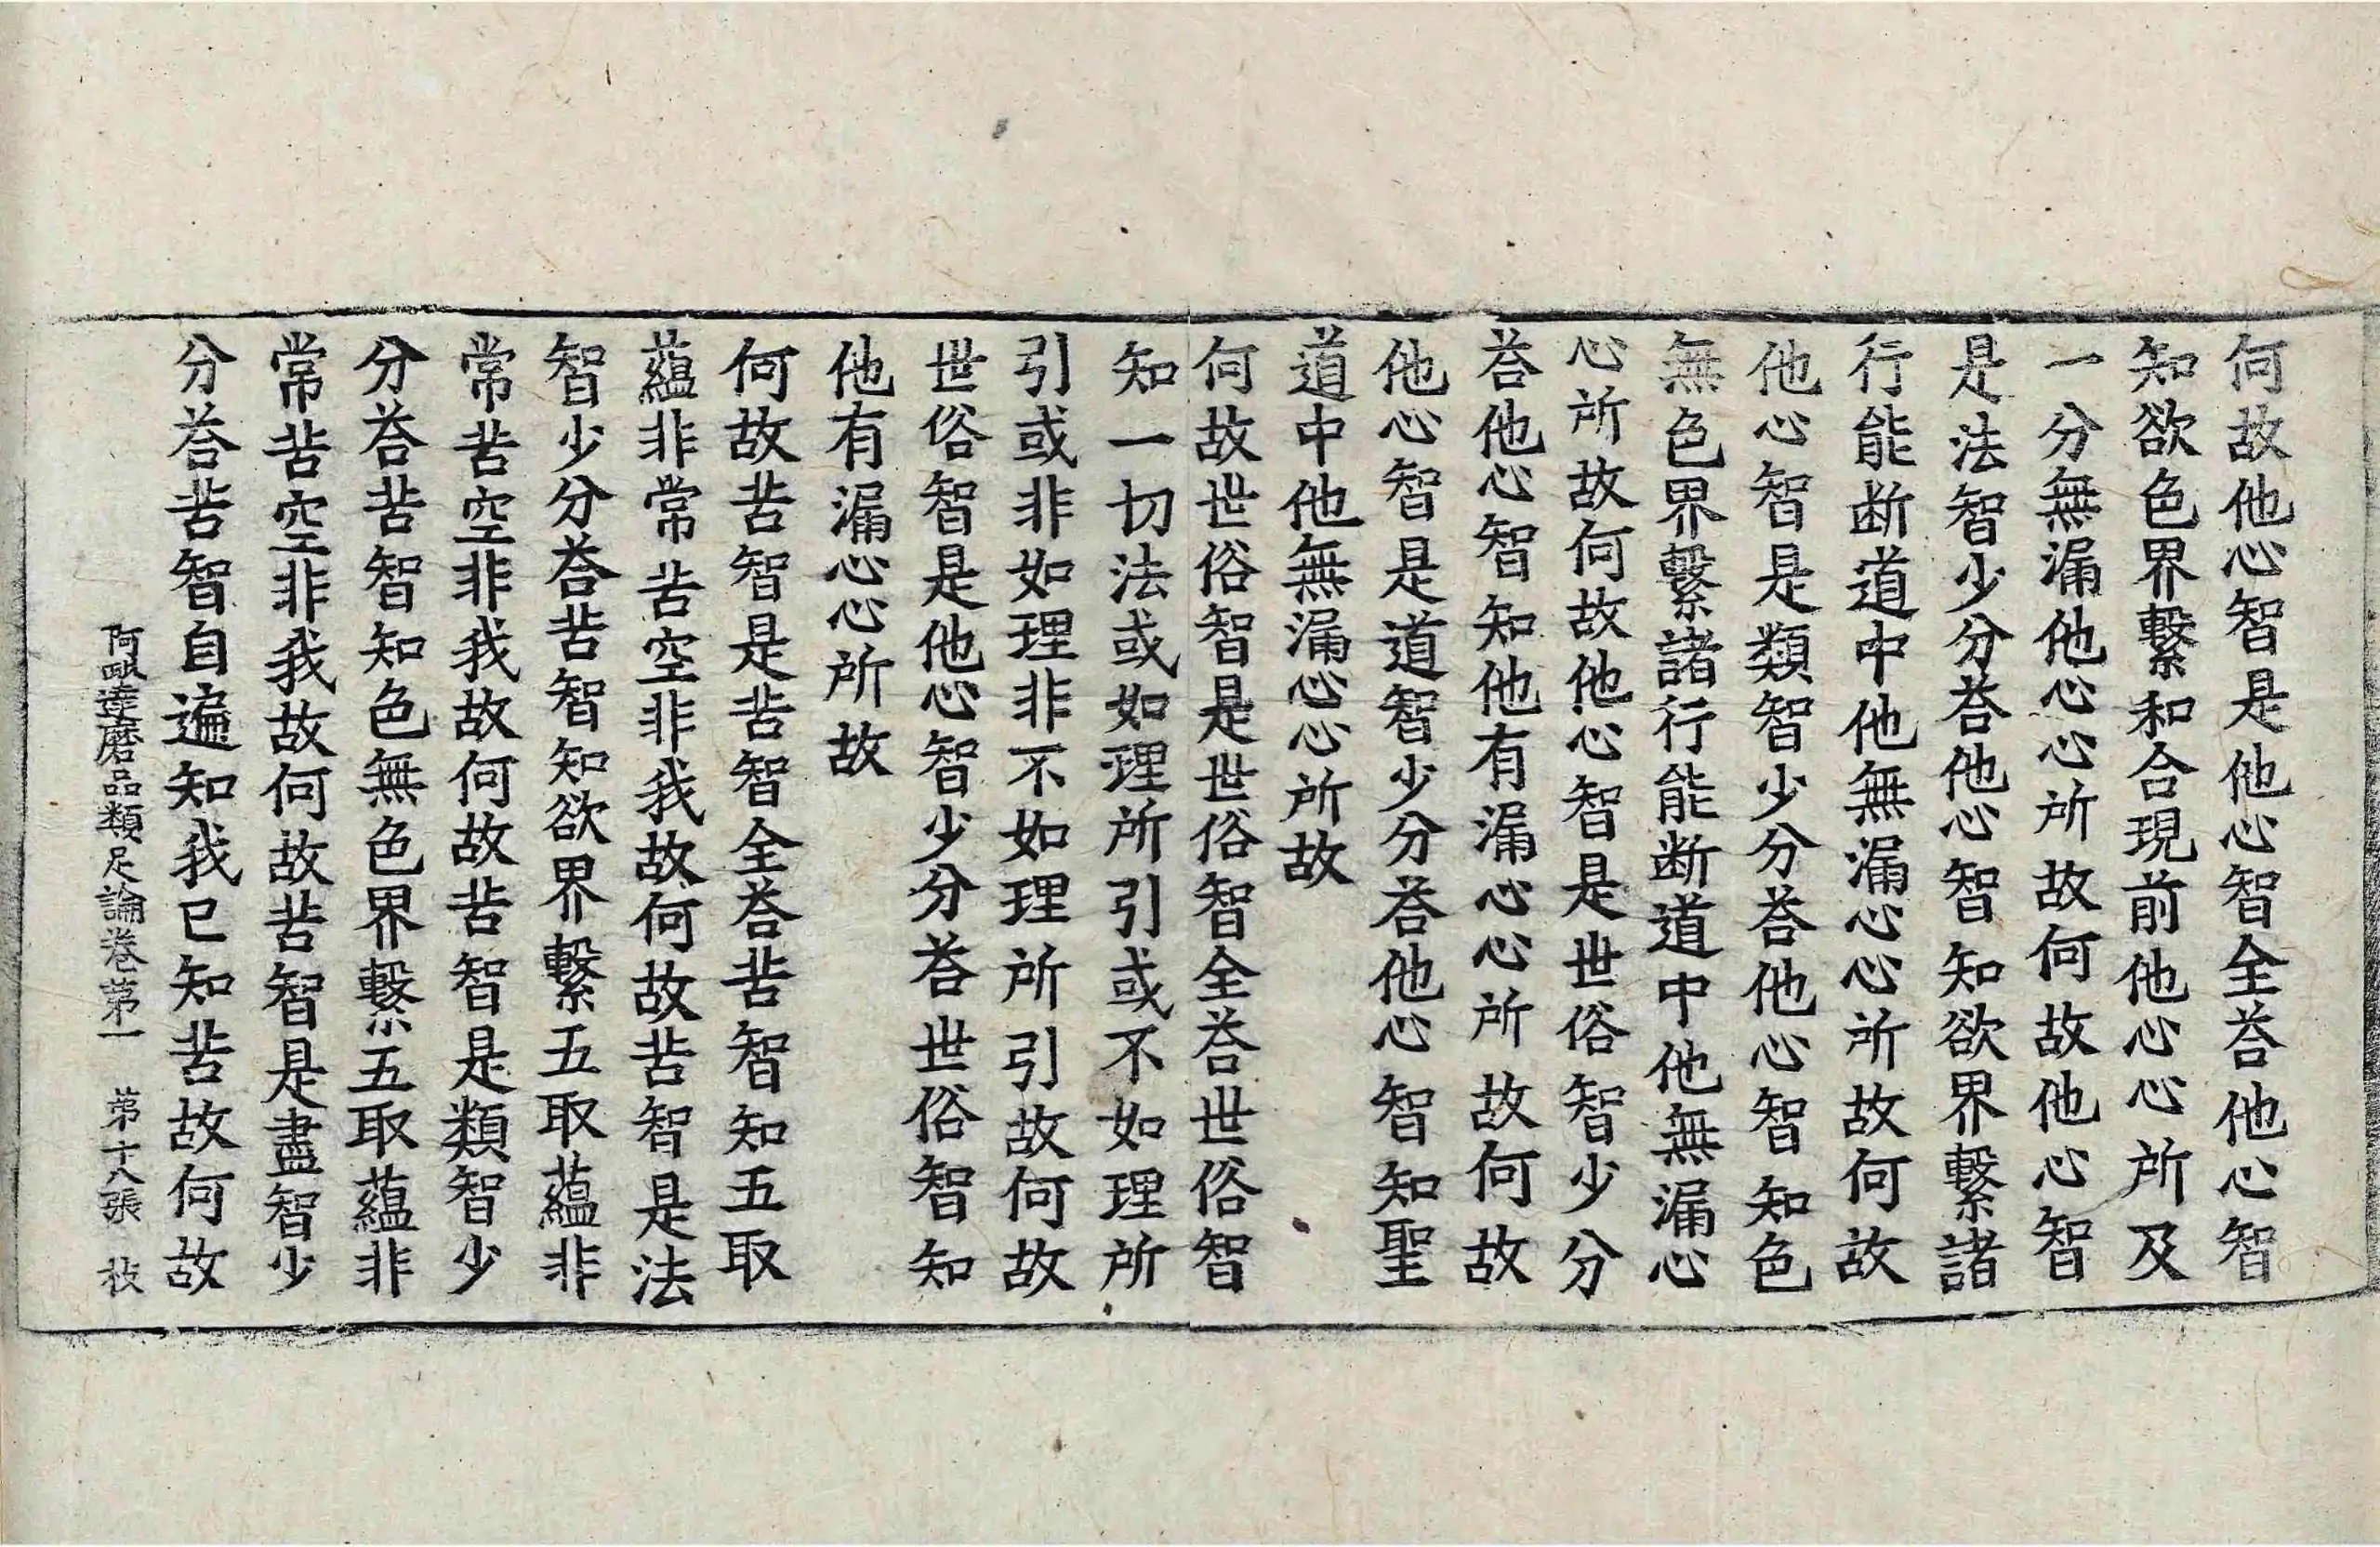 何故他心智是他心智全荅他心智
知欲色界繫和合現前他心心所及
一分無漏他心心所故何故他心智
是法智少分荅他心智知欲界繫諸
行能断道中他無漏心心所故何故
他心智是類智少分荅他心智知色
無色界繫諸行能断道中他無漏心
心所故何故他心智是世俗智少分
荅他心智知他有漏心心所故何故
他心智是道智少分荅他心智知聖
道中他無漏心心所故
何故世俗智是世俗智全荅世俗智
知一切法或如理所引或不如理所
引或非如理非不如理所引故何故
世俗智是他心智少分荅世俗智知
他有漏心心所故
何故苦智是苦智全荅苦智知五取
蘊非常苦空非我故何故苦智是法
智少分荅苦智知欲界繫五取蘊非
常苦空非我故何故苦智是類智少
分荅苦智知色無色界繫五取蘊非
常苦空非我故何故苦智是盡智少
分荅苦智自遍知我已知苦故何故
阿毗達磨品類足論卷第一 第十八張